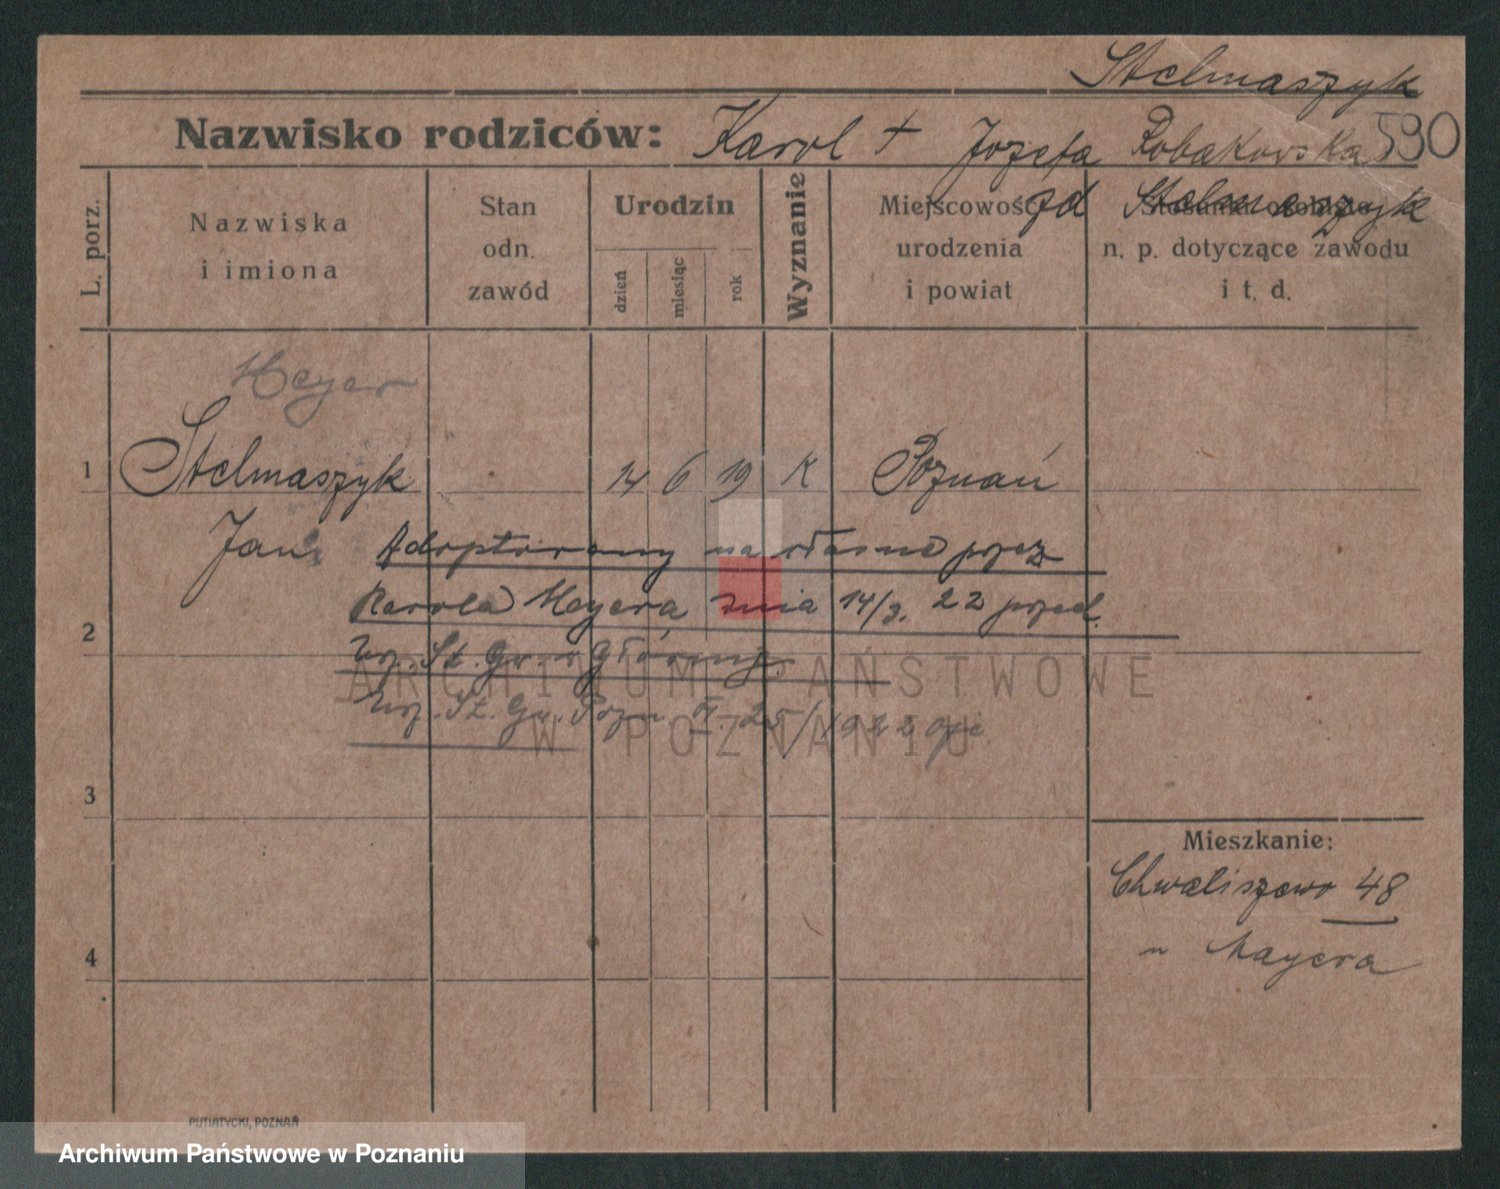 Stelmaszyk
Nazwisko rodziców: Karol + Jozefa Robakowska 590
zd Stelmaszyk
L. porz.
Nazwiska
i imiona
Stan
odn.
zawód
Urodzin
dzień
miesiąc
rok
Wyznanie
Miejscowość
urodzenia
i powiat
Stosunki osobiste
n. p. dotyczące zawodu
i t. d.
Heyer
1 Stelmaszyk 14 6 19 K Poznań
Jan Adoptowany na własne przez
Karola Heyera dnia 14/9. 22 przed
2
Urz. St. Gr. w
Urz. St. Gr. Pozn. 25/1922
ARCHIWUM PAŃSTWOWE
W POZNANIU
3
Mieszkanie:
Chwaliszewo 48
u Mayera
4
PUTIATYCKI, POZNAŃ
Archiwum Państwowe w Poznaniu